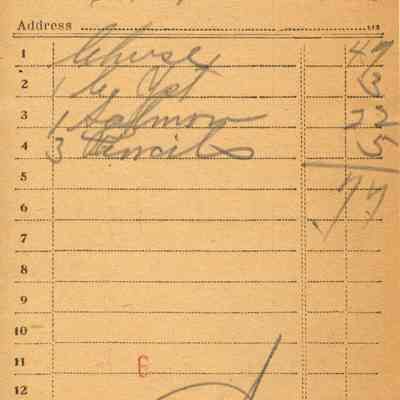 Address
1 Cheese 47
2 1 Yst 3
3 1 Salmon 22
4 3 Pencils 5
5 77
6
7
8
9
10
11 6
12